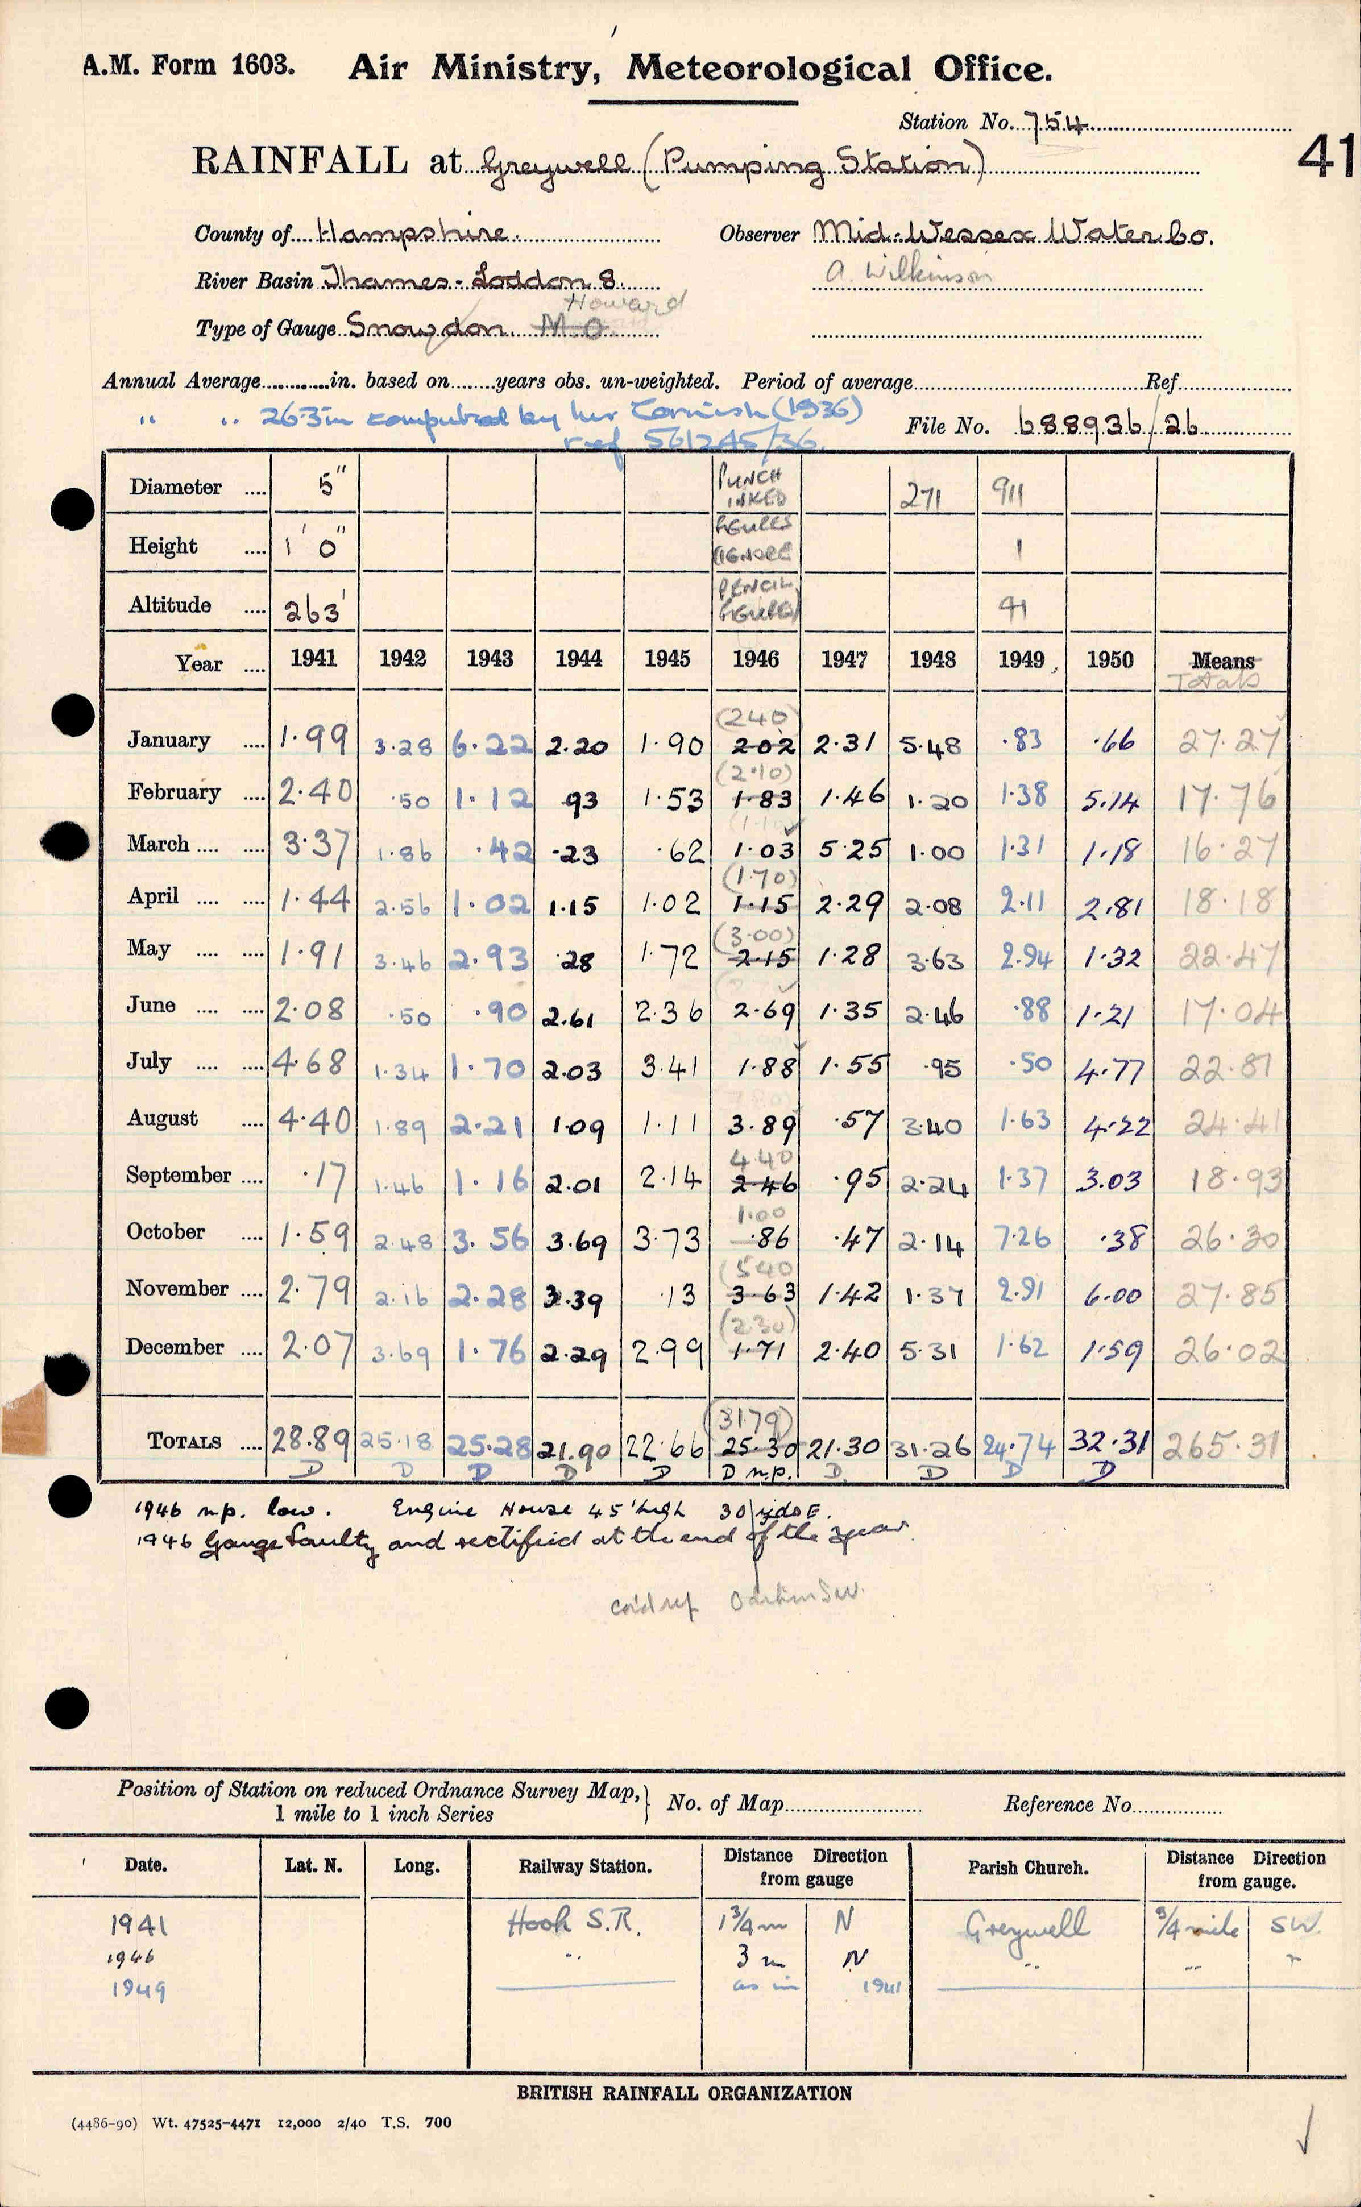 A.M. Form 1603. Air Ministry, Meteorological Office.
Station No. 754
41
RAINFALL at Greywell (Pumping Station)
County of Hampshire. Observer Mid-Wessex Water Co.
River Basin Thames-Loddon 8. A. Wilkinson
Howard
Type of Gauge Snowdon M.O.
Annual Average in. based on years obs. un-weighted. Period of average Ref
" " 26.3 in computed by her Cornish (1936) File No. 688936/26
ref 561245/36.
Diameter 5" PUNCH INKED 271 911
Height 1' 0" FIGURES IGNORE 1
Altitude 263' PENCIL FIGURES 91
Year 1941 1942 1943 1944 1945 1946 1947 1948 1949 1950 Means
Totals
(240)
January 1.99 3.28 6.22 2.20 1.90 2.02 2.31 5.48 .83 .66 27.27
(2.10)
February 2.40 .50 1.12 .93 1.53 1.83 1.46 1.20 1.38 5.14 17.76
March 3.37 1.86 .42 .23 .62 1.03 5.25 1.00 1.31 1.18 16.27
(1.70)
April 1.44 2.56 1.02 1.15 1.02 1.15 2.29 2.08 2.11 2.81 18.18
(3.00)
May 1.91 3.46 2.93 .28 1.72 2.15 1.28 3.63 2.94 1.32 22.47
June 2.08 .50 .90 2.61 2.36 2.69 1.35 2.46 .88 1.21 17.04
July 4.68 1.34 1.70 2.03 3.41 1.88 1.55 .95 .50 4.77 22.81
August 4.40 1.89 2.21 1.09 1.11 3.89 .57 3.40 1.63 4.22 24.41
4.40
September .17 1.46 1.16 2.01 2.14 2.46 .95 2.24 1.37 3.03 18.93
1.00
October 1.59 2.48 3.56 3.69 3.73 .86 .47 2.14 7.26 .38 26.30
(540
November 2.79 2.16 2.28 3.39 .13 3.63 1.42 1.37 2.91 6.00 27.85
(230)
December 2.07 3.69 1.76 2.29 2.99 1.71 2.40 5.31 1.62 1.59 26.02
(3179)
TOTALS 28.89 25.18 25.28 21.90 22.66 25.30 21.30 31.26 24.74 32.31 265.31
D D D D D D n.p. D. D D D
1946 n.p. low. Engine House 45' high 30 yds E.
1946 Gauge faulty and rectified at the end of the year.
Position of Station on reduced Ordnance Survey Map, 1 mile to 1 inch Series } No. of Map Reference No.
Date. Lat. N. Long. Railway Station. Distance Direction from gauge Parish Church. Distance Direction from gauge.
1941 Hook S.R. 1 3/4 m N Greywell 3/4 mile SW.
1946 " 3 m N " " "
1949 as in 1941
BRITISH RAINFALL ORGANIZATION
(4486-90) Wt. 47525-4471 12,000 2/40 T.S. 700